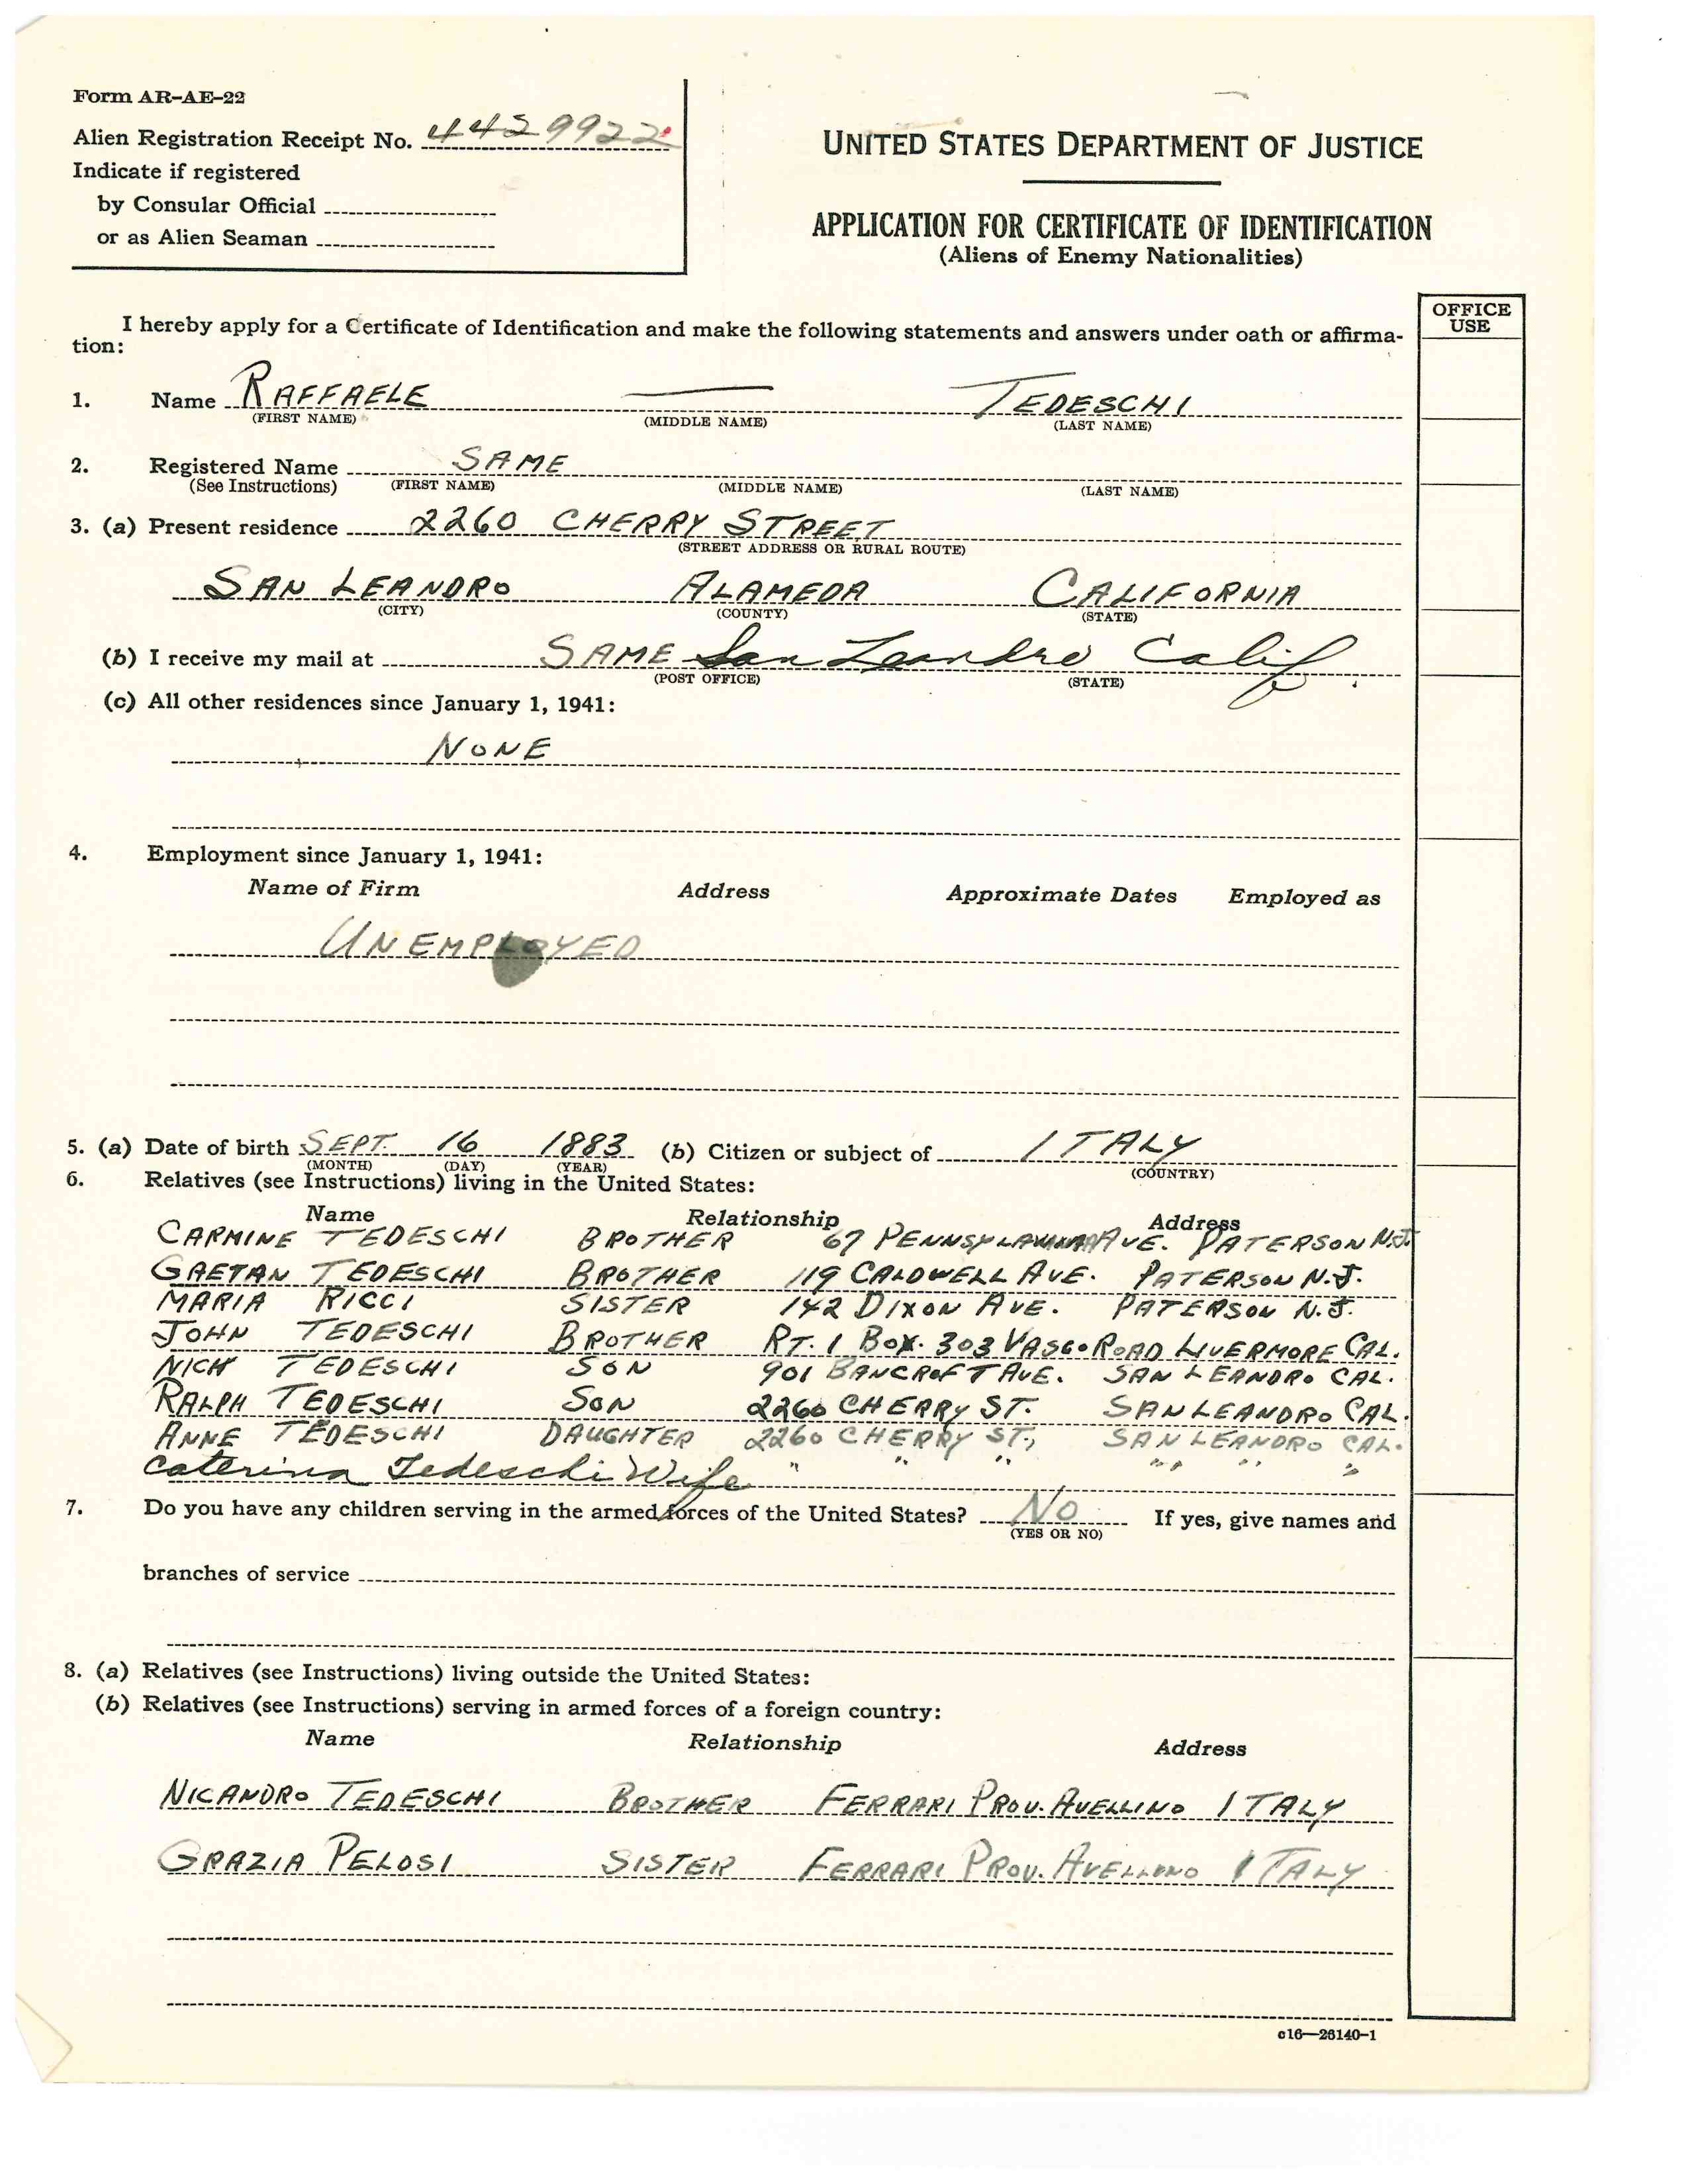 Form AR-AE-22
Alien Registration Receipt No. 4429922
Indicate if registered
by Consular Official
or as Alien Seaman
UNITED STATES DEPARTMENT OF JUSTICE
APPLICATION FOR CERTIFICATE OF IDENTIFICATION
(Aliens of Enemy Nationalities)
OFFICE
USE
I hereby apply for a Certificate of Identification and make the following statements and answers under oath or affirma-
tion:
1. Name RAFFAELE — TEDESCHI
(FIRST NAME) (MIDDLE NAME) (LAST NAME)
2. Registered Name SAME
(See Instructions) (FIRST NAME) (MIDDLE NAME) (LAST NAME)
3. (a) Present residence 2260 CHERRY STREET
(STREET ADDRESS OR RURAL ROUTE)
SAN LEANDRO ALAMEDA CALIFORNIA
(CITY) (COUNTY) (STATE)
(b) I receive my mail at SAME San Leandro Calif.
(POST OFFICE) (STATE)
(c) All other residences since January 1, 1941:
NONE
4. Employment since January 1, 1941:
Name of Firm Address Approximate Dates Employed as
UNEMPLOYED
5. (a) Date of birth SEPT. 16 1883 (b) Citizen or subject of ITALY
(MONTH) (DAY) (YEAR) (COUNTRY)
6. Relatives (see Instructions) living in the United States:
Name Relationship Address
CARMINE TEDESCHI BROTHER 67 AVE. PATERSON N.J.
GAETAN TEDESCHI BROTHER 119 CALDWELL AVE. PATERSON N.J.
MARIA RICCI SISTER 142 DIXON AVE. PATERSON N.J.
JOHN TEDESCHI BROTHER RT. 1 BOX. 303 VASCO ROAD LIVERMORE CAL.
NICK TEDESCHI SON 901 BANCROFT AVE. SAN LEANDRO CAL.
RALPH TEDESCHI SON 2260 CHERRY ST. SAN LEANDRO CAL.
ANNE TEDESCHI DAUGHTER 2260 CHERRY ST., SAN LEANDRO CAL.
Caterina Tedeschi Wife " " " " " "
7. Do you have any children serving in the armed forces of the United States? NO If yes, give names and
(YES OR NO)
branches of service
8. (a) Relatives (see Instructions) living outside the United States:
(b) Relatives (see Instructions) serving in armed forces of a foreign country:
Name Relationship Address
NICANDRO TEDESCHI BROTHER FERRARI PROV. AVELLINO ITALY
GRAZIA PELOSI SISTER FERRARI PROV. AVELLINO ITALY
c16—26140-1